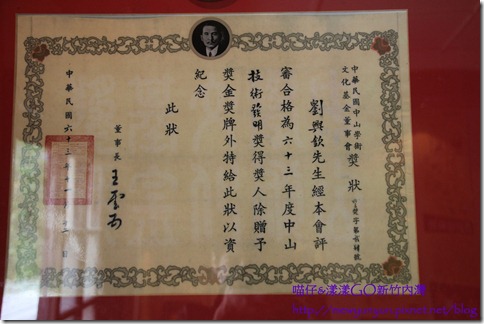 中華民國中山學術
文化基金董事會
獎狀
劉興欽先生經本會評
審合格為六十三年度中山
技術發明獎得獎人除贈予
獎金獎牌外特給此狀以資
紀念
此狀
董事長 王雲五
中華民國六十三年十一月十二日
喵仔&漾漾GO新竹內灣